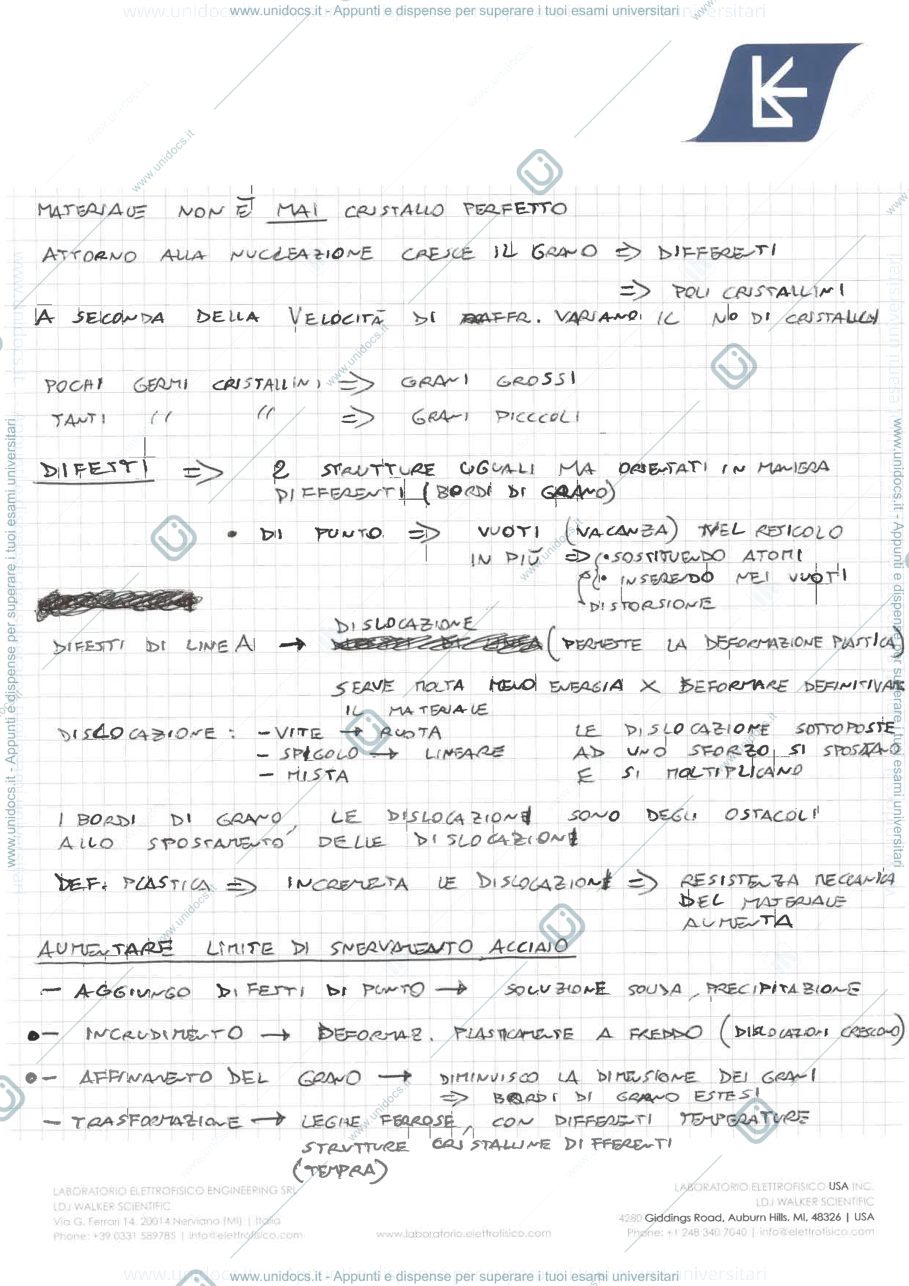 www.unidocs.it - Appunti e dispense per superare i tuoi esami universitari
MATERIALE NON È MAI CRISTALLO PERFETTO
ATTORNO ALLA NUCLEAZIONE CRESCE IL GRANO => DIFFERENTI
=> POLI CRISTALLINI
A SECONDA DELLA VELOCITÀ DI RAFFR. VARIANO IL NO DI CRISTALLI
POCHI GERMI CRISTALLINI => GRANI GROSSI
TANTI " " => GRANI PICCCOLI
DIFETTI => 2 STRUTTURE UGUALI MA ORIENTATI IN MANIERA
DIFFERENTI (BORDI DI GRANO)
• DI PUNTO => VUOTI (VACANZA) NEL RETICOLO
IN PIÙ => • SOSTITUENDO ATOMI
• INSERENDO NEI VUOTI
DISTORSIONE
DISLOCAZIONE
DIFETTI DI LINEA → (PERMETTE LA DEFORMAZIONE PLASTICA)
SERVE MOLTA MENO ENERGIA X DEFORMARE DEFINITIVAM
IL MATERIALE
DISLOCAZIONE : - VITE → RUOTA LE DISLOCAZIONE SOTTOPOSTE
- SPIGOLO → LINEARE AD UNO SFORZO, SI SPOSTANO
- MISTA E SI MOLTIPLICANO
I BORDI DI GRANO, LE DISLOCAZIONI SONO DEGLI OSTACOLI
ALLO SPOSTAMENTO DELLE DISLOCAZIONI
DEF. PLASTICA => INCREMENTA LE DISLOCAZIONI => RESISTENZA MECCANICA
DEL MATERIALE
AUMENTA
AUMENTARE LIMITE DI SNERVAMENTO ACCIAIO
- AGGIUNGO DIFETTI DI PUNTO → SOLUZIONE SOLIDA, PRECIPITAZIONE
• - INCRUDIMENTO → DEFORMAZ. PLASTICAMENTE A FREDDO (DISLOCAZIONI CRESCONO)
• - AFFINAMENTO DEL GRANO → DIMINUISCO LA DIMENSIONE DEI GRANI
=> BORDI DI GRANO ESTESI
- TRASFORMAZIONE → LEGHE FERROSE, CON DIFFERENTI TEMPERATURE
STRUTTURE CRISTALLINE DIFFERENTI
(TEMPRA)
LABORATORIO ELETTROFISICO ENGINEERING SRL
LDJ WALKER SCIENTIFIC
Via G. Ferrari 14, 20014 Nerviano (MI) | Italia
Phone: +39 0331 589785 | info@elettrofisico.com
www.laboratorio.elettrofisico.com
LABORATORIO ELETTROFISICO USA INC.
LDJ WALKER SCIENTIFIC
4280 Giddings Road, Auburn Hills, MI, 48326 | USA
Phone: +1 248 340 7040 | info@elettrofisico.com
www.unidocs.it - Appunti e dispense per superare i tuoi esami universitari